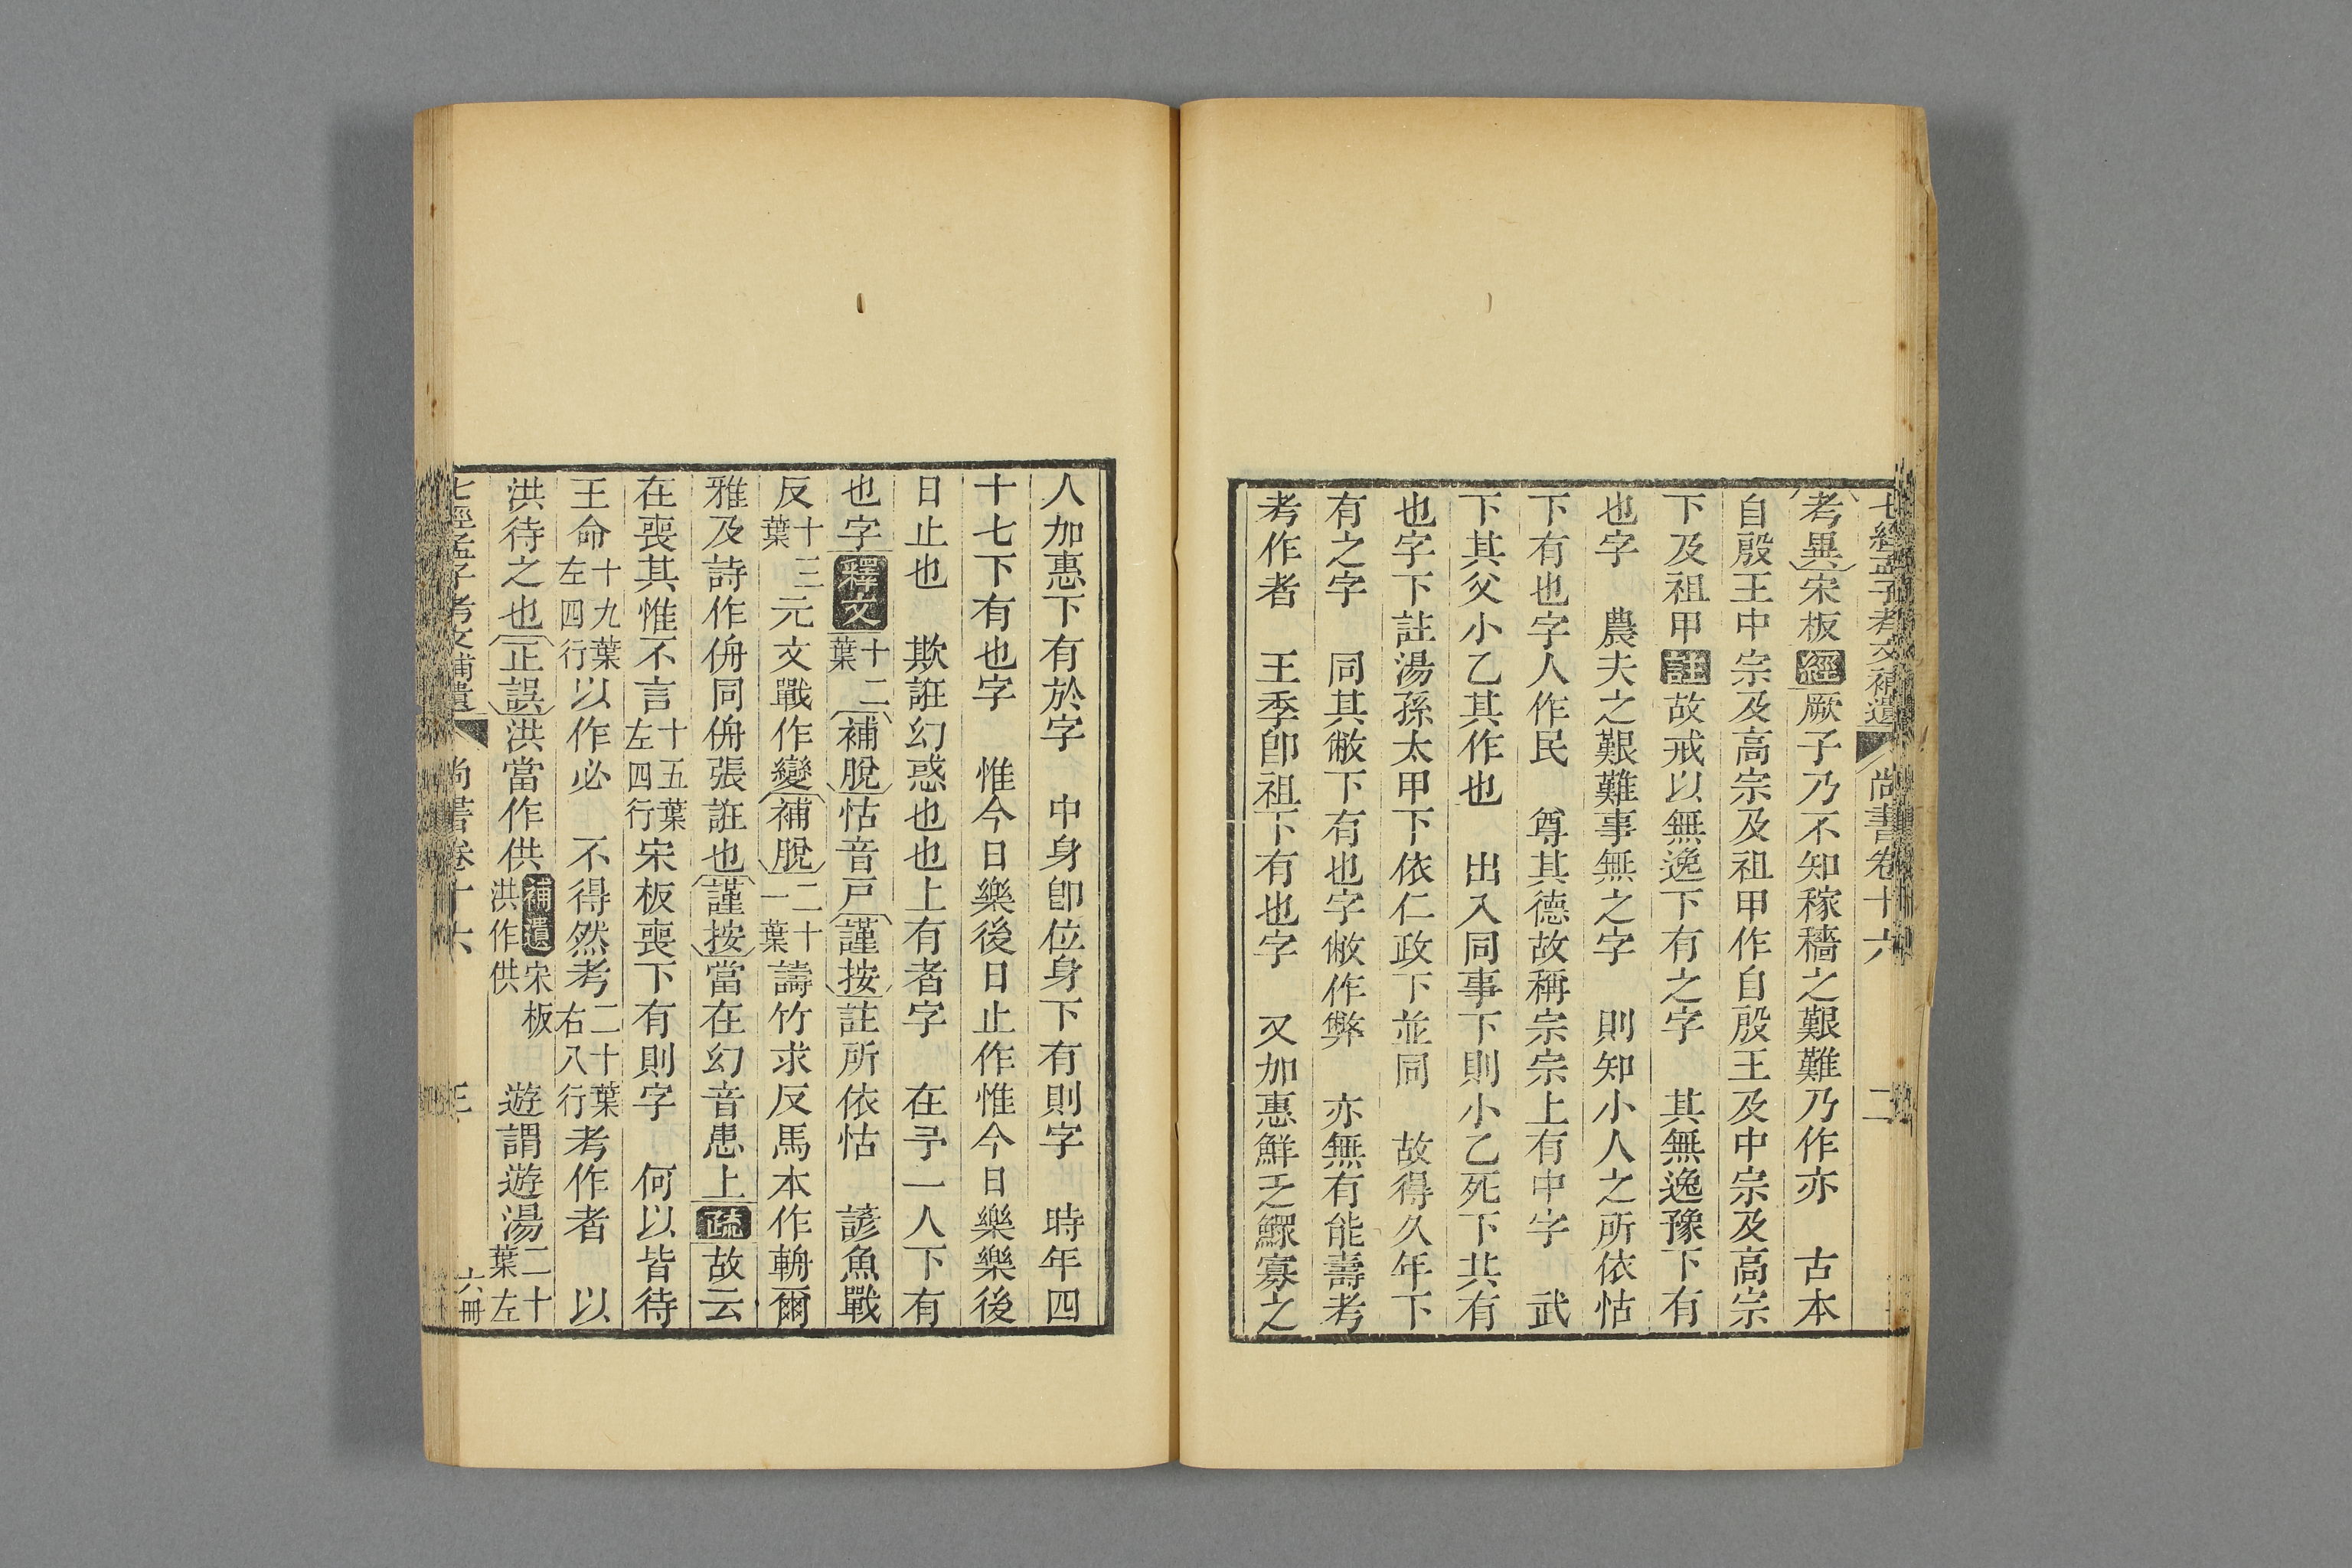 七經孟子考文補遺 尚書卷十六 二
考異宋板經厥子乃不知稼穡之艱難乃作亦 古本
自殷王中宗及高宗及祖甲作自殷王及中宗及高宗
下及祖甲註故戒以無逸下有之字 其無逸豫下有
也字 農夫之艱難事無之字 則知小人之所依怙
下有也字人作民 尊其德故稱宗宗上有中字 武
下其父小乙其作也 出入同事下則小乙死下共有
也字下註湯孫太甲下依仁政下並同 故得久年下
有之字 同其敝下有也字敝作弊 亦無有能壽考
考作者 王季卽祖下有也字 又加惠鮮乏鰥寡之
人加惠下有於字 中身卽位身下有則字 時年四
十七下有也字 惟今日樂後日止作惟今日樂樂後
日止也 欺誑幻惑也也上有者字 在予一人下有
也字釋文十二葉補脫怙音戸謹按註所依怙 諺魚戰
反十三葉元文戰作變補脫二十一葉譸竹求反馬本作輈爾
雅及詩作侜同侜張誑也謹按當在幻音患上疏故云
在喪其惟不言十五葉左四行宋板喪下有則字 何以皆待
王命十九葉左四行以作必 不得然考二十葉右八行考作者 以
洪待之也正誤洪當作供補遺宋板洪作供 遊謂遊湯二十葉左
七經孟子考文補遺 尚書卷十六 三 六冊